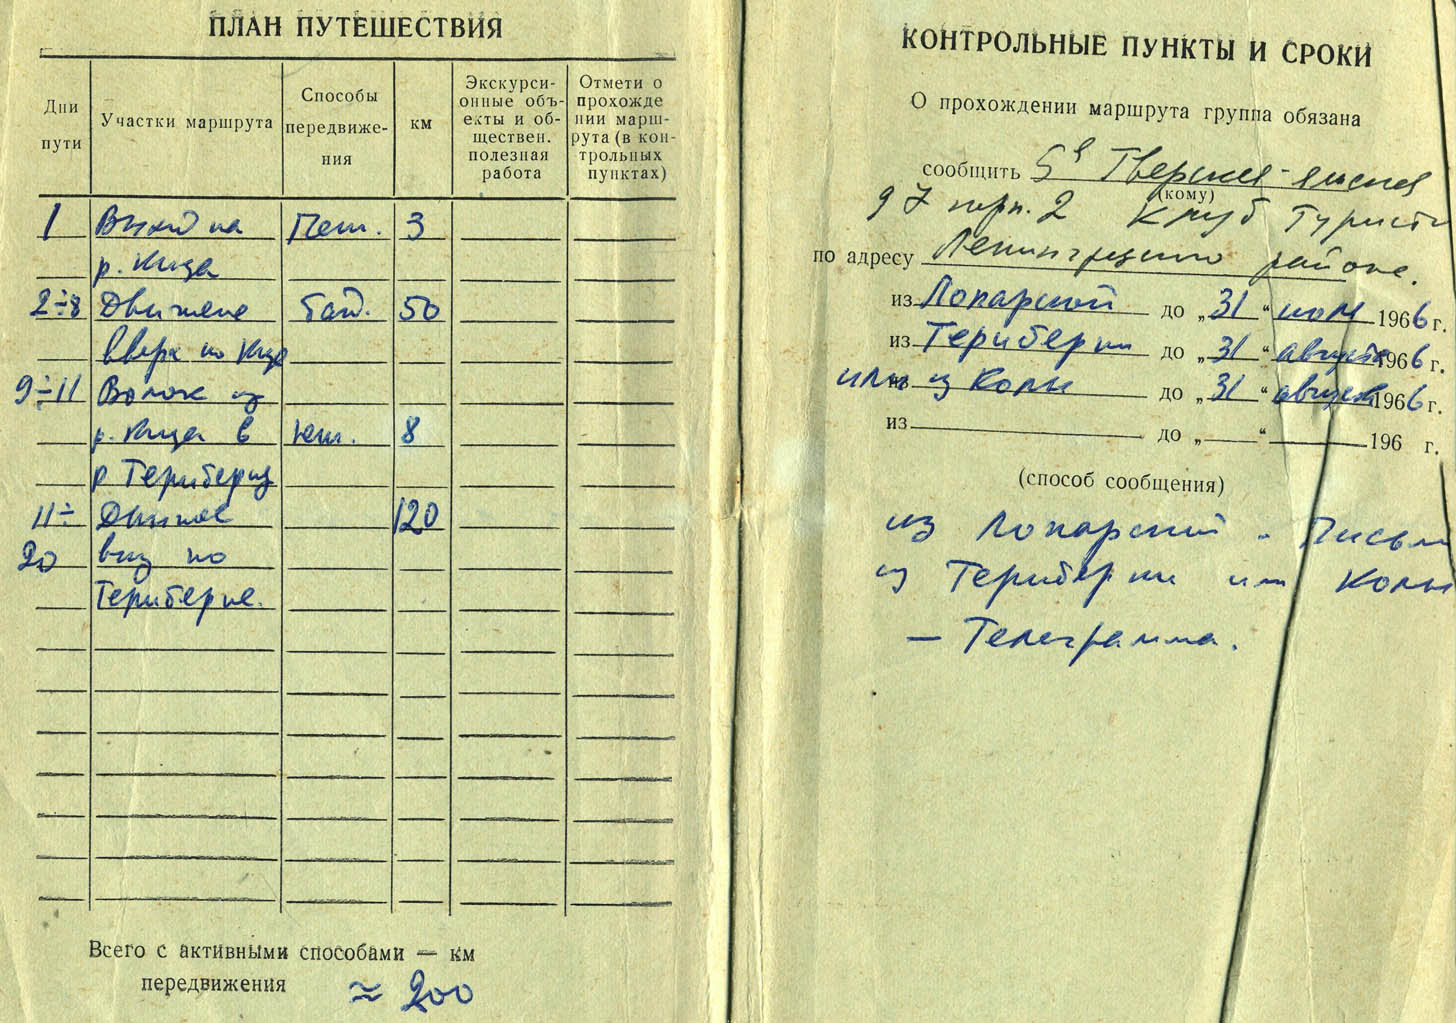 ПЛАН ПУТЕШЕСТВИЯ
Дни пути
Участки маршрута
Способы передвиже-
ния
км
Экскурси-
онные объ-
екты и об-
ществен.
полезная
работа
Отмети о
прохожде
нии марш-
рута (в кон-
трольных
пунктах)
1 Выход на Пеш. 3
р. Кица
2÷8 Движение байд. 50
вверх по Кице
9÷11 Волок из
р. Кица в пеш. 8
р Териберка
11÷ Движение 120
20 вниз по
Териберке.
Всего с активными способами — км
передвижения ≈ 200
КОНТРОЛЬНЫЕ ПУНКТЫ И СРОКИ
О прохождении маршрута группа обязана
сообщить 5я Тверская-Ямская
(кому)
Клуб Туристов
по адресу Ленинградского районе.
из Лопарской до „31“ июля 1966 г.
из Териберки до „31“ августа 1966 г.
или из Колы до „31“ августа 1966 г.
из до „ “ 196 г.
(способ сообщения)
из Лопарской - Письмо
из Териберки или Колы
— Телеграмма.